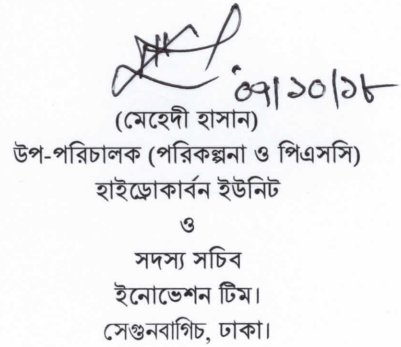 ০৭/১০/১৮
(মেহেদী হাসান)
উপ-পরিচালক (পরিকল্পনা ও পিএসসি)
হাইড্রোকার্বন ইউনিট
ও
সদস্য সচিব
ইনোভেশন টিম।
সেগুনবাগিচ, ঢাকা।